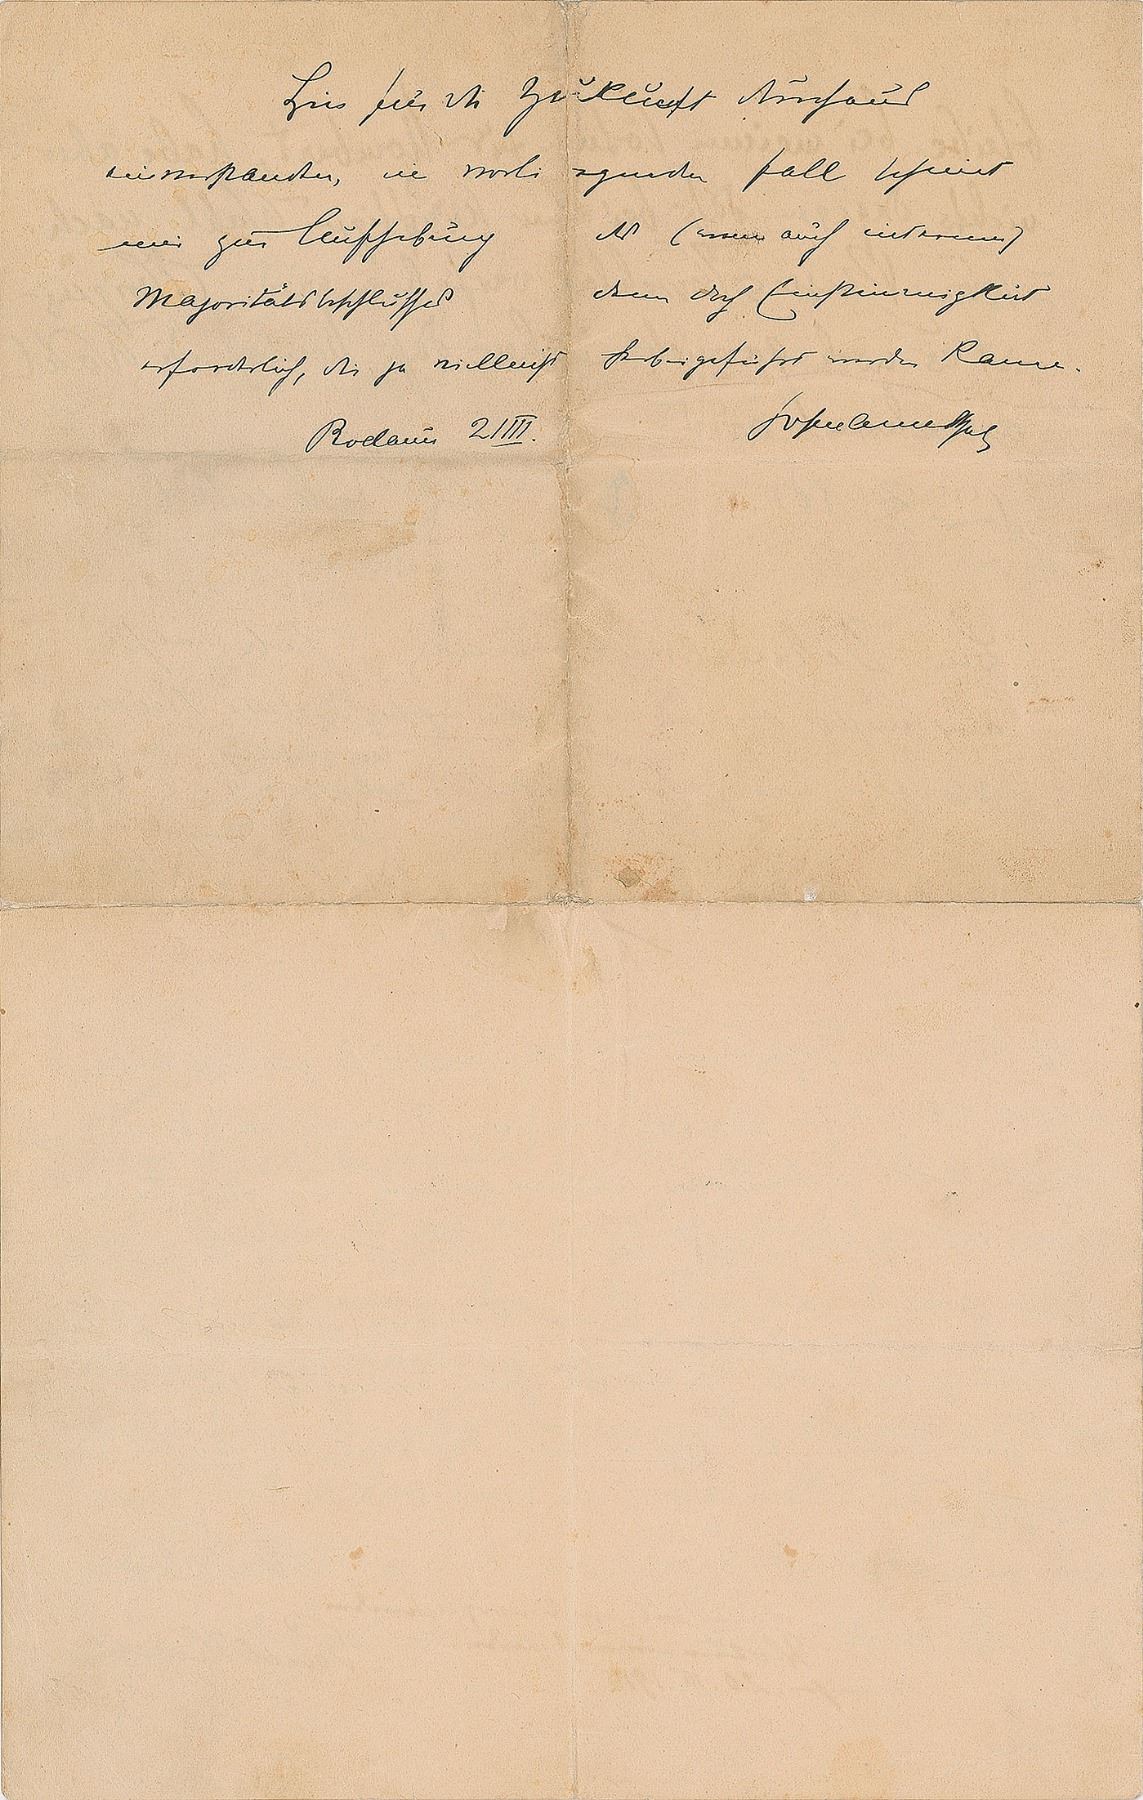 Bin für die Zukunft durchaus
einverstanden, im vorliegenden Fall scheint
mir zur Aufhebung des (wenn auch internen)
Majoritätsbeschlusses denn doch Einstimmigkeit
erforderlich, die ja vielleicht herbeigeführt werden kann.
Rodaun 21 III. Hofmannsthal